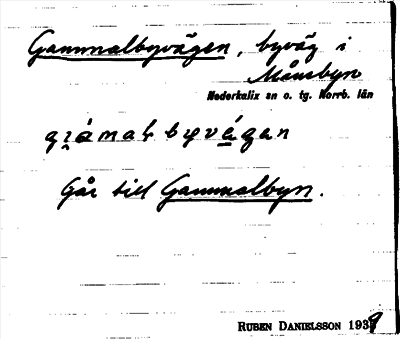 Gammalbyvägen, byväg i
Månsbyn
Nederkalix sn o. tg. Norrb. län
Går till Gammalbyn.
RUBEN DANIELSSON 1939